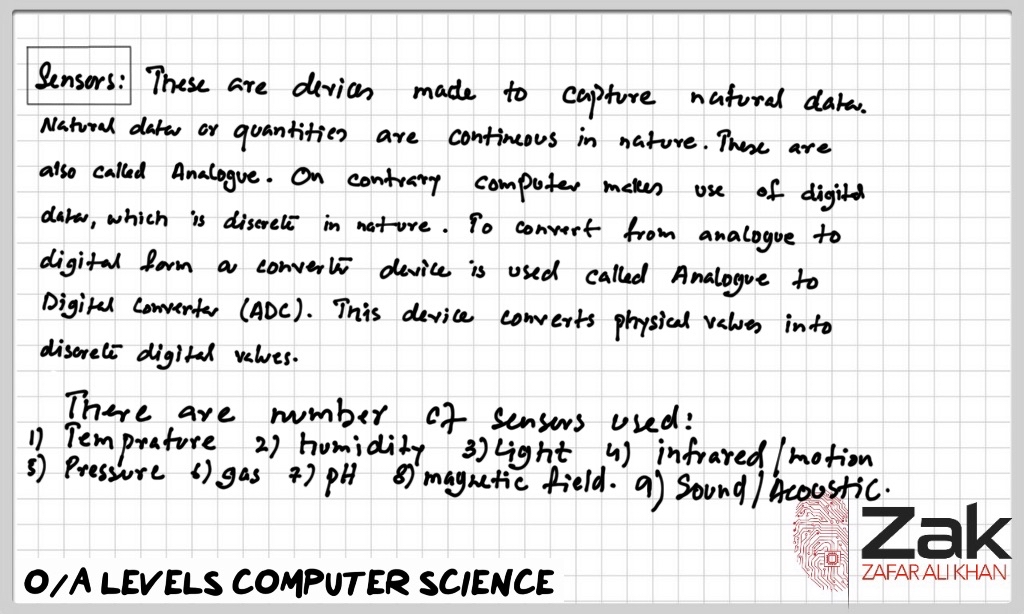 Sensors: These are devices made to capture natural data.
Natural data or quantities are contineous in nature. These are
also called Analogue. On contrary computer makes use of digital
data, which is discrete in nature. To convert from analogue to
digital form a converter device is used called Analogue to
Digital Converter (ADC). This device converts physical values into
discrete digital values.
There are number of sensors used:
1) Temprature 2) humidity 3) Light 4) infrared/motion
5) Pressure 6) gas 7) pH 8) magnetic field. 9) Sound/Acoustic.
Zak
ZAFAR ALI KHAN
O/A LEVELS COMPUTER SCIENCE